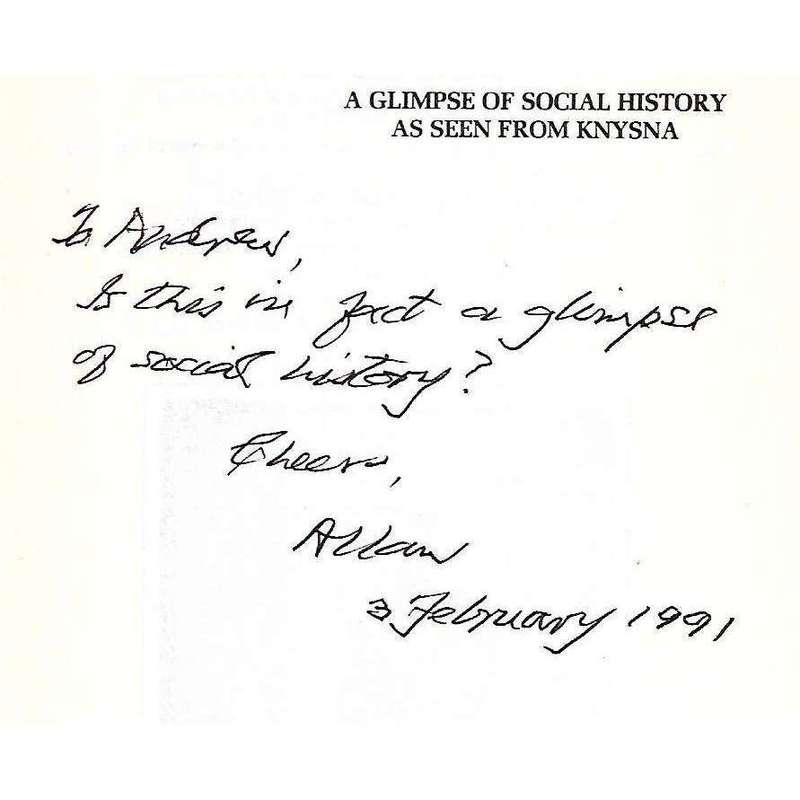 A GLIMPSE OF SOCIAL HISTORY
AS SEEN FROM KNYSNA
To Andrew,
Is this in fact a glimpse
of social history?
Cheers,
Allan
3 February 1991